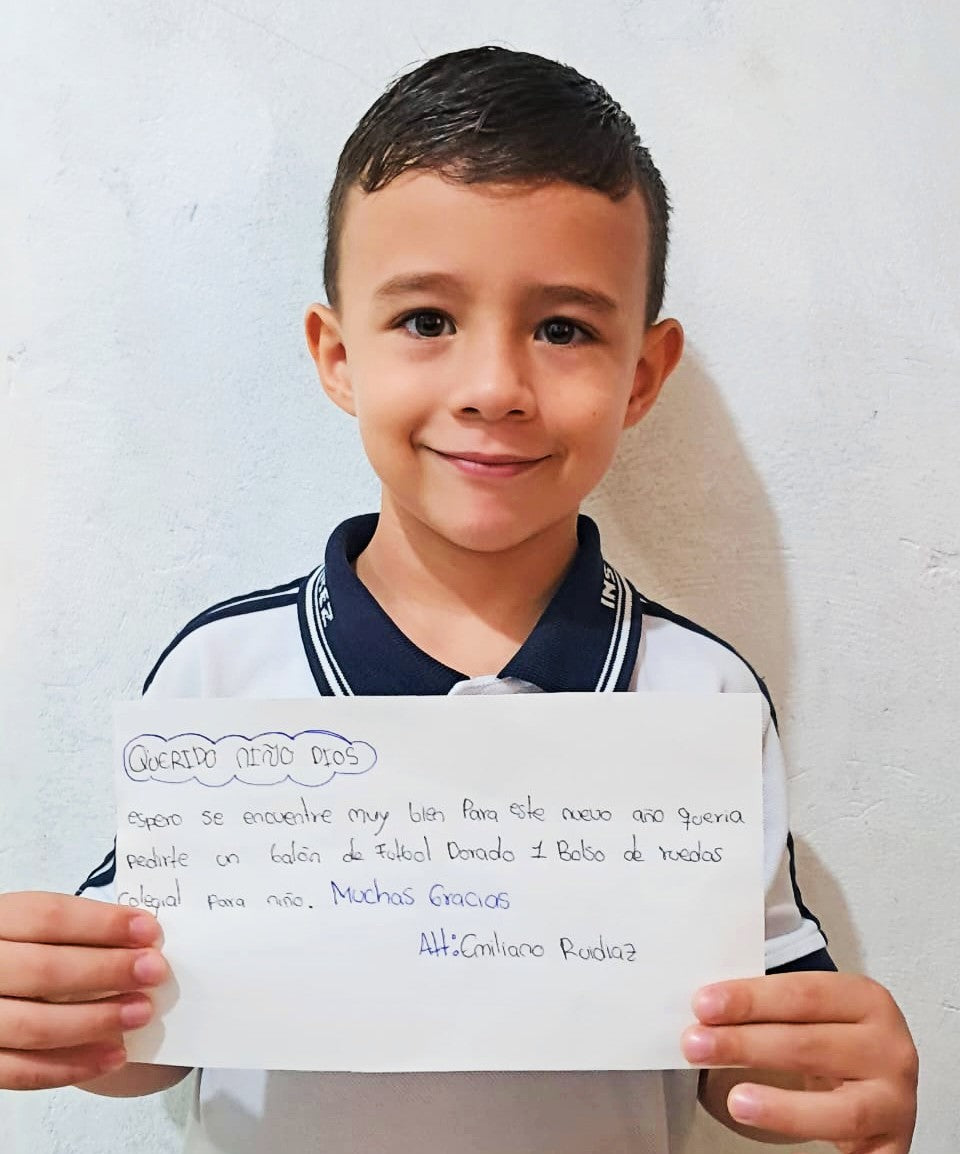 EZ
INS
QUERIDO NIÑO DIOS
espero se encuentre muy bien Para este nuevo año queria
pedirte un balón de Futbol Dorado 1 Bolso de ruedas
colegial para niño. Muchas Gracias
Att: Emiliano Ruidiaz